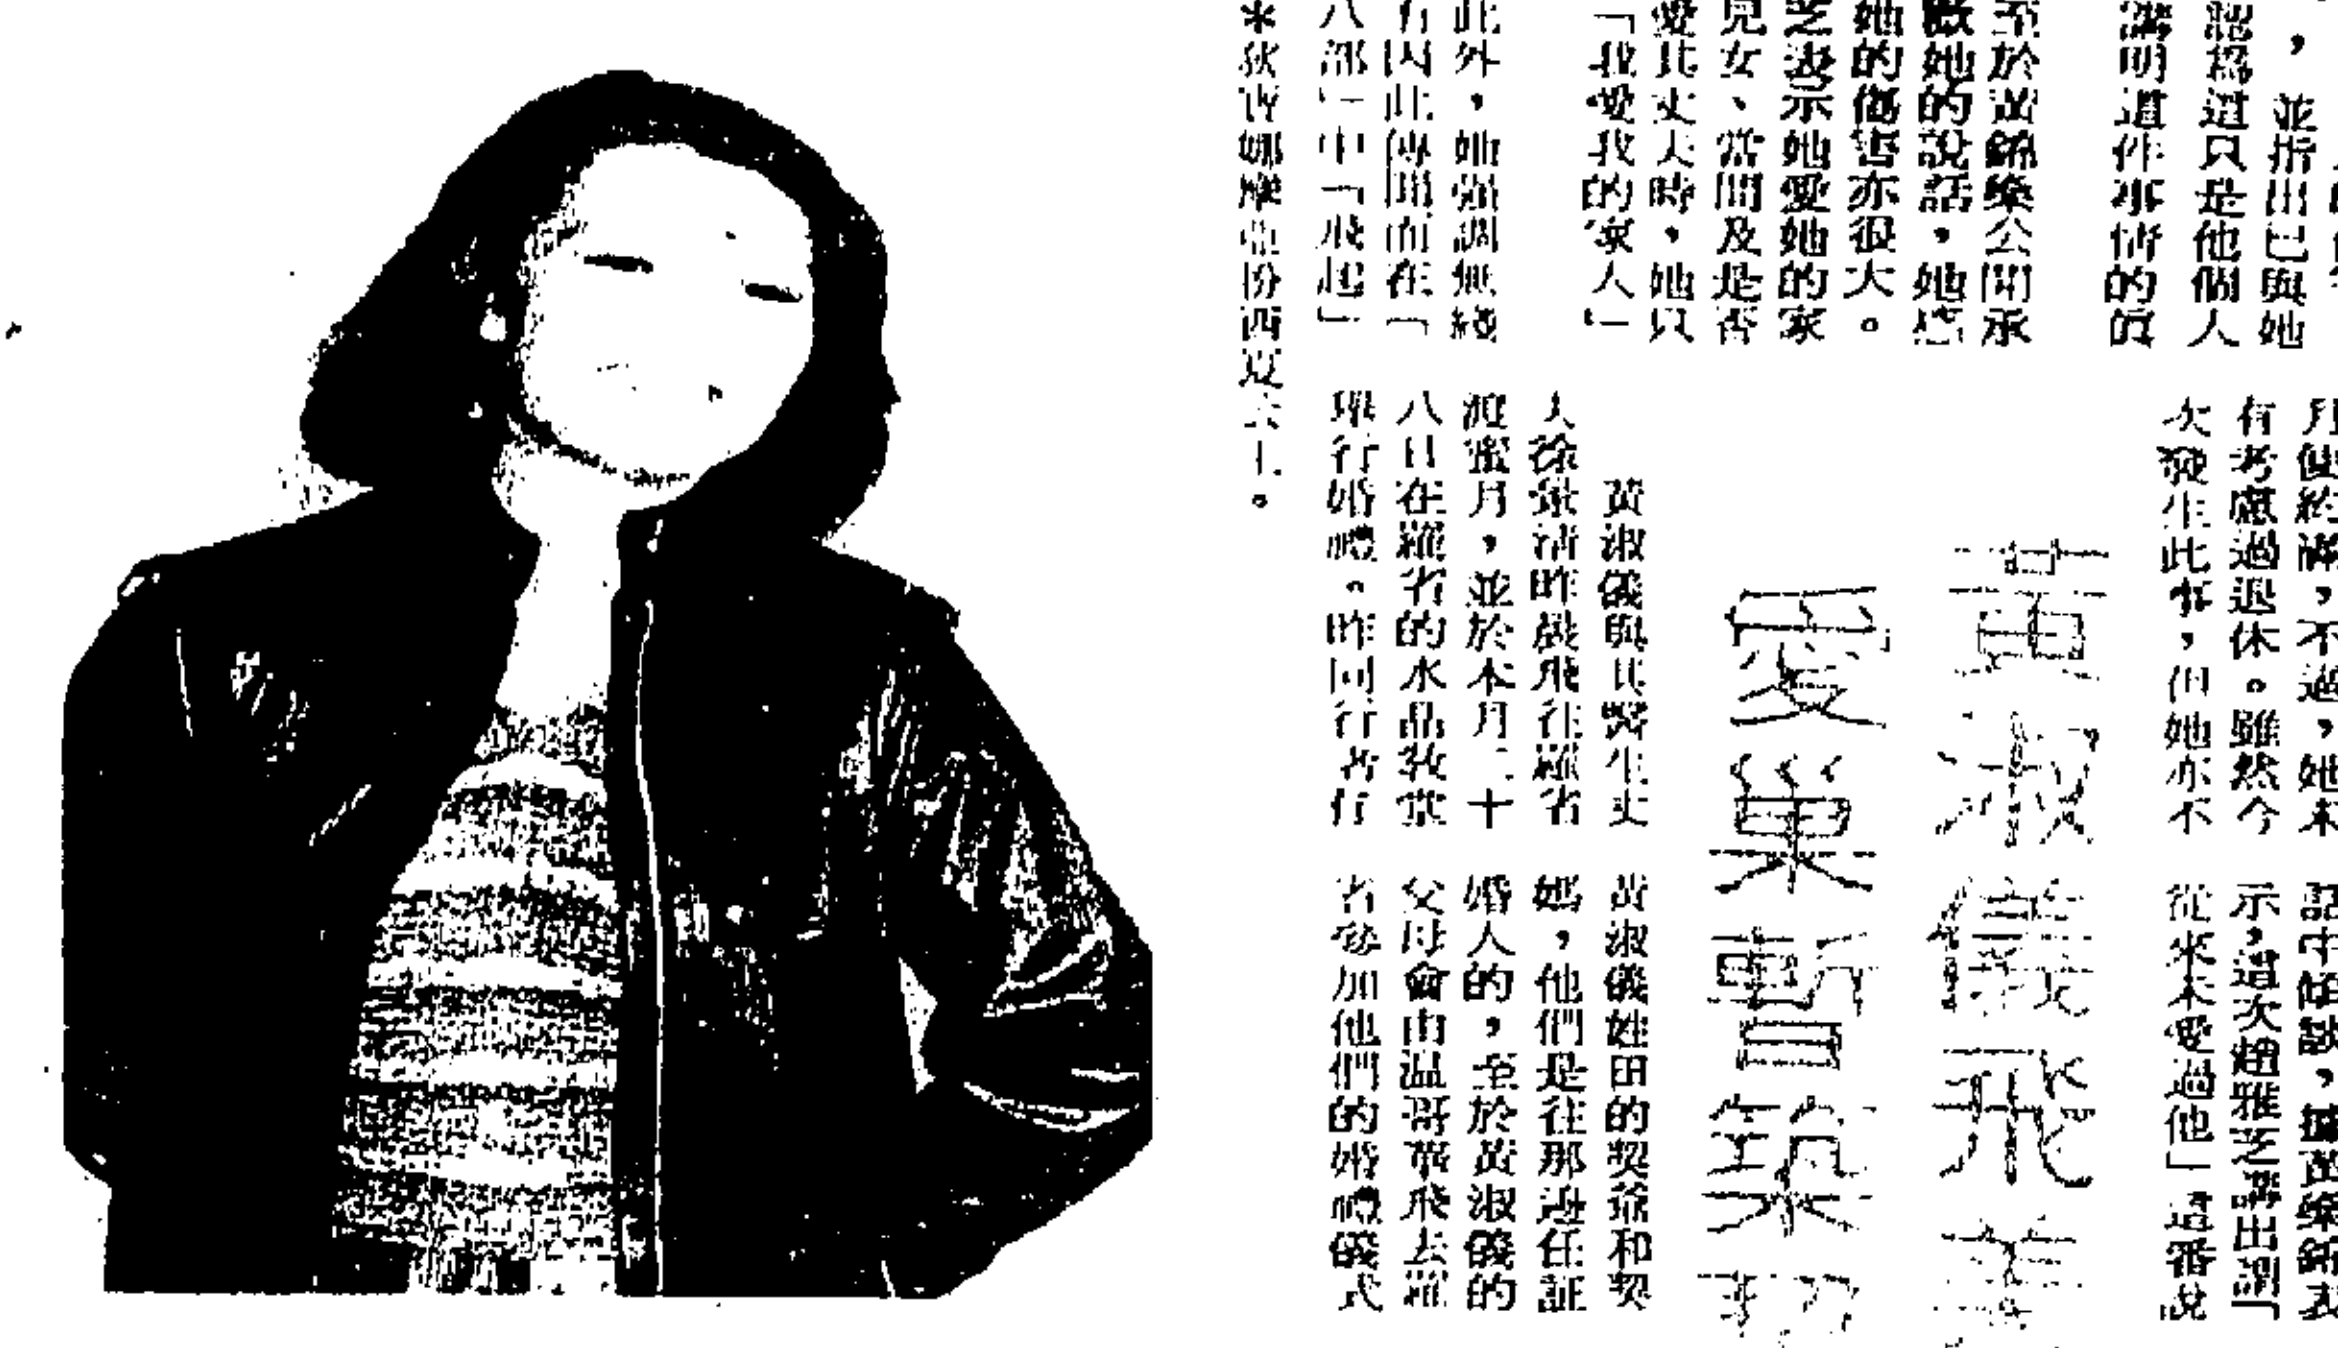 ，並指出已與她
認爲這只是他個人
講明這件事情的眞
至於黃錦燊公開承
她的說話，她
她的傷害亦很大。
芝表示她愛她的家
兒女、當問及是否
愛其丈夫時，她只
「我愛我的家人」
此外，她強調無綫
有因此傳聞而在「
八部」中「飛起」
＊狄茜娜摩亞份西夏太上。
月便約滿，不過，她未
有考慮過退休。雖然今
次發生此事，但她亦不
話中傾談，據黃燊錦表
示，這次趙雅芝講出謂「
從來未愛過他」這番說
黃淑儀飛
愛巢暫築
黃淑儀與其醫生丈
人徐景清昨晨飛往羅省
渡蜜月，並於本月二十
八日在羅省的水晶教堂
舉行婚禮。昨同行者有
黃淑儀姓田的契爺和契
媽，他們是往那邊任証
婚人的，至於黃淑儀的
父母會由温哥華飛去羅
省參加他們的婚禮儀式